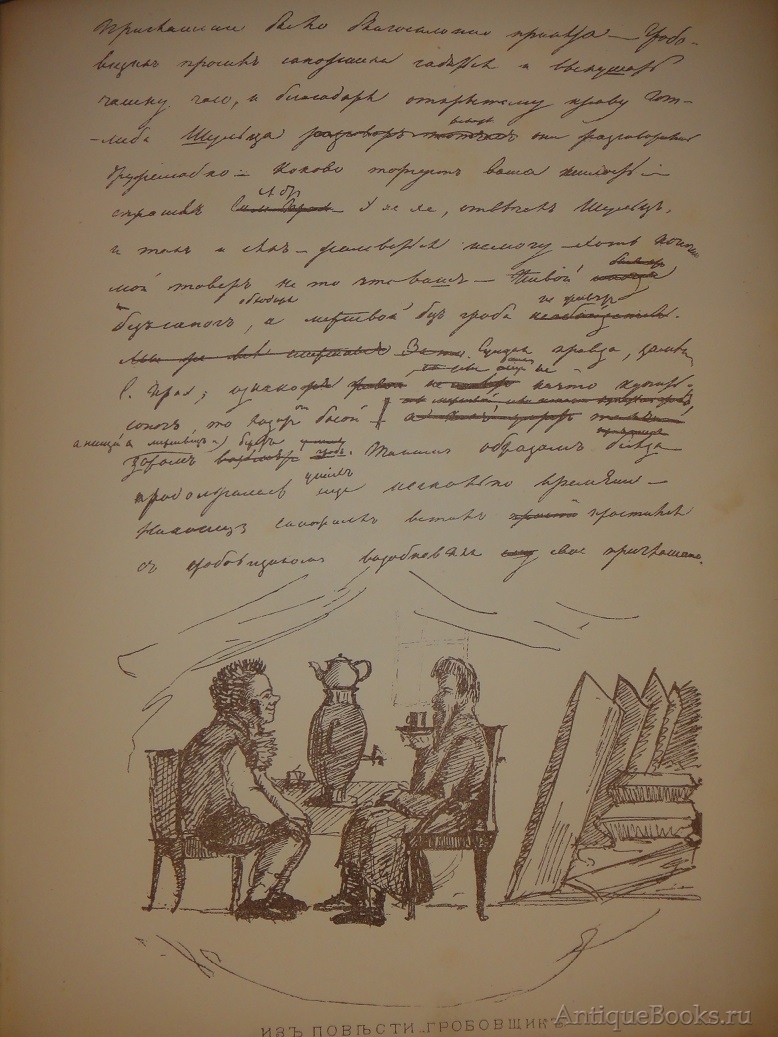 Приглашение было благосклонно принято — Гробо-
вщикъ просилъ сапожника садиться и выкушать
чашку чаю, и благодаря открытому нраву Гот-
-либа Шульца разговоръ они разговорились
дружелюбно — Каково торгуетъ ваша милость —
спросилъ Адр. Э хе хе, отвѣчалъ Шульцъ,
и такъ и сякъ — пожаловаться не могу — хоть конечно
мой товаръ не то что вашъ — Живой
безъ сапогъ обойдется, а мертвой безъ гроба не живетъ.
Сущая правда, замѣт.
А. Прох; однако если не на что купить
сапогъ, то ходитъ босой
а нищій мертвецъ беретъ
даромъ гробъ. Такимъ образомъ бесѣда
продолжалась у нихъ еще нѣсколько времени —
Наконецъ сапожникъ всталъ простился
съ гробовщикомъ возобновляя свое приглашение.
ИЗЪ ПОВѢСТИ „ГРОБОВЩИКЪ"
AntiqueBooks.ru